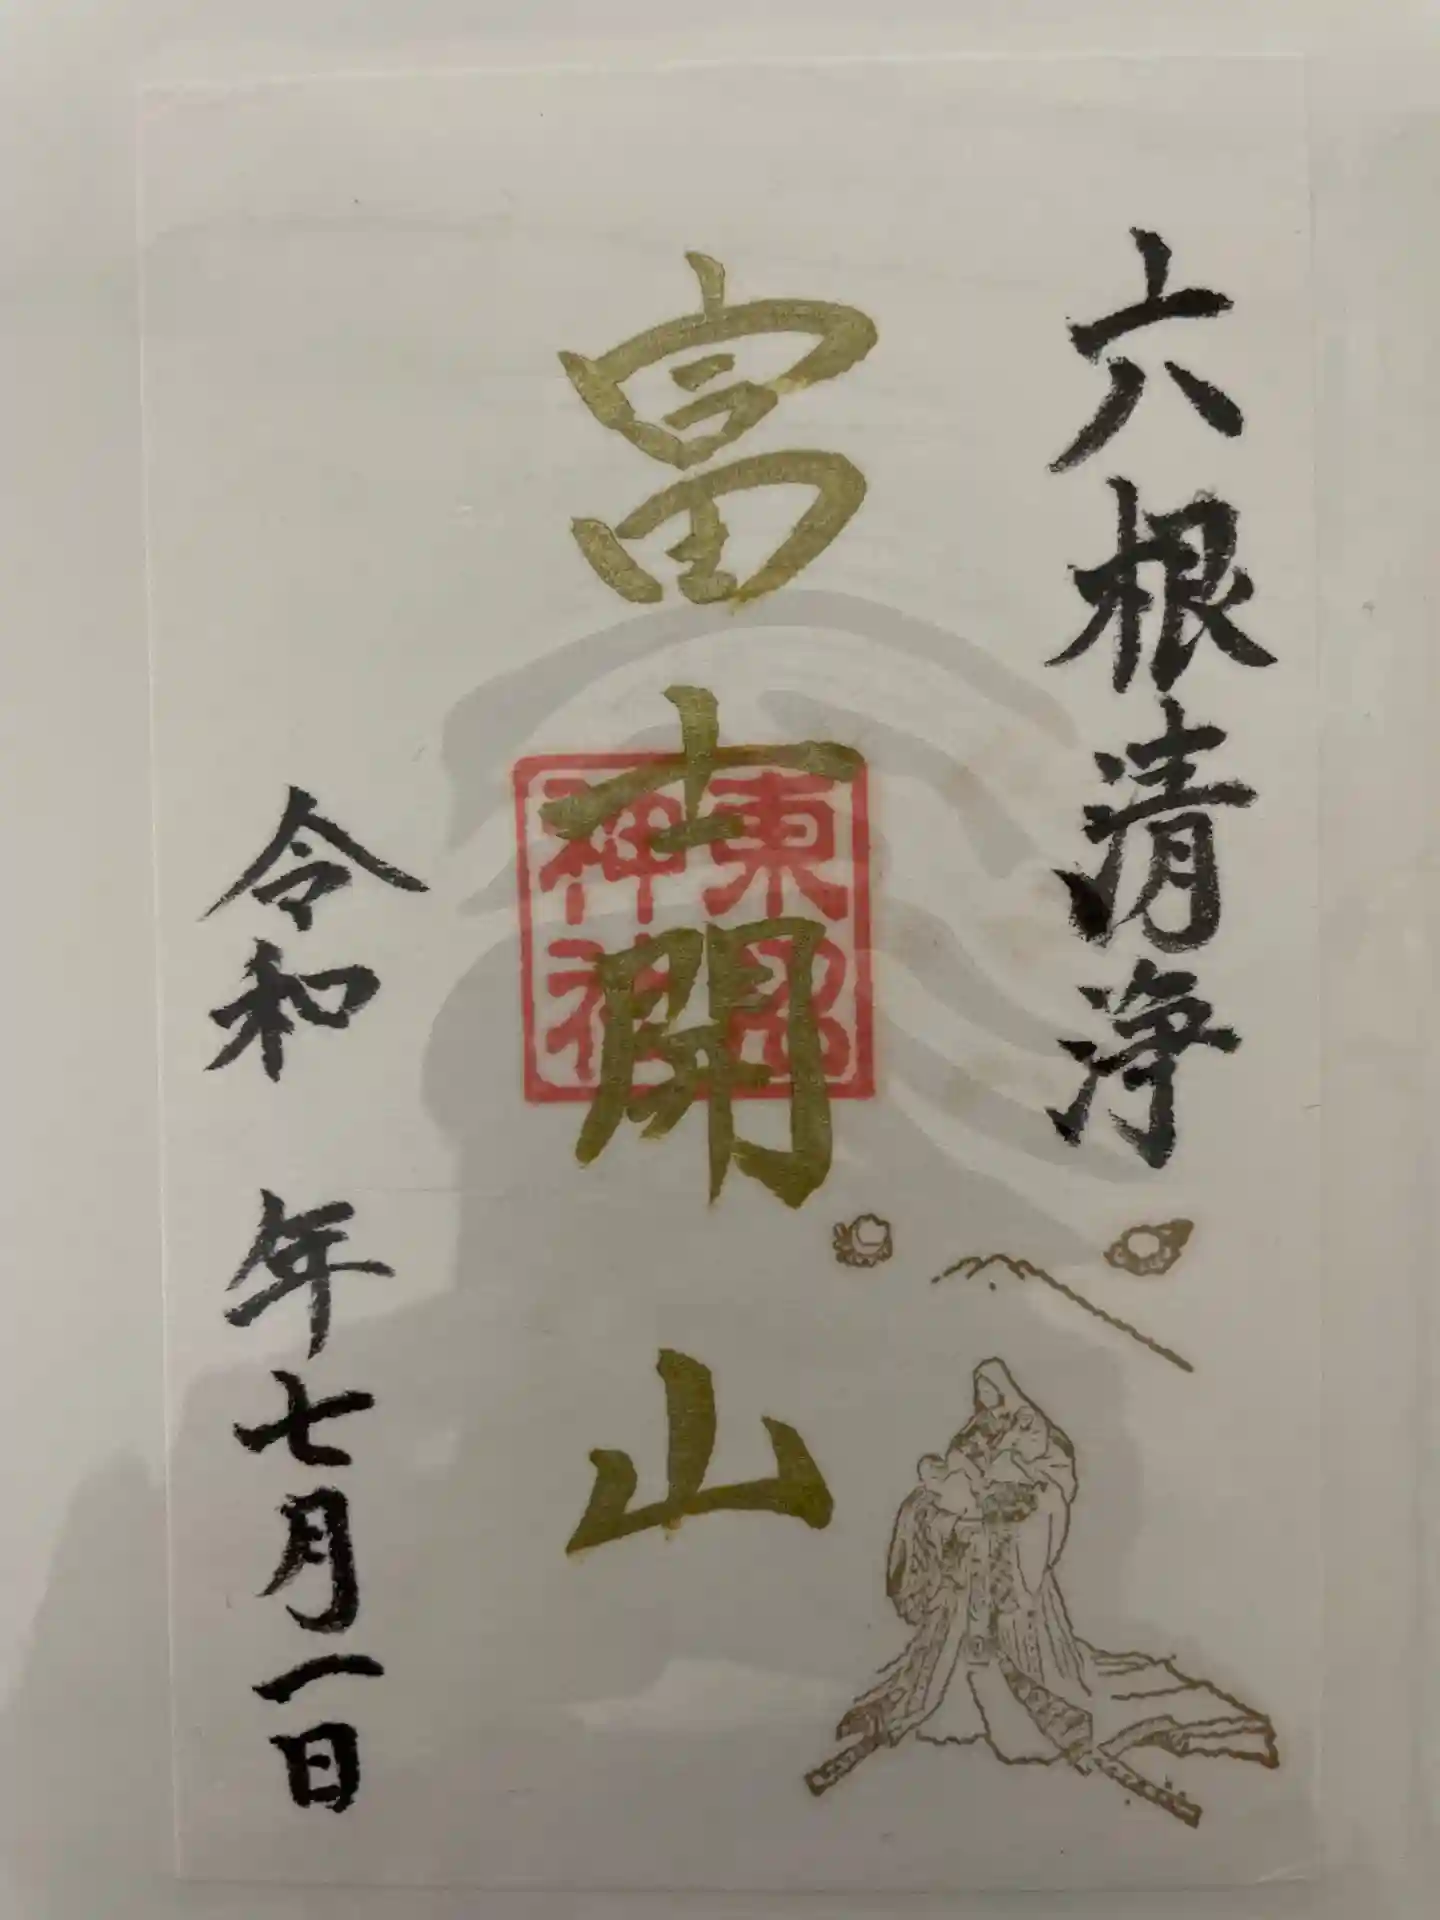 六根清浄
富士開山
東照
神社
令和 年七月一日